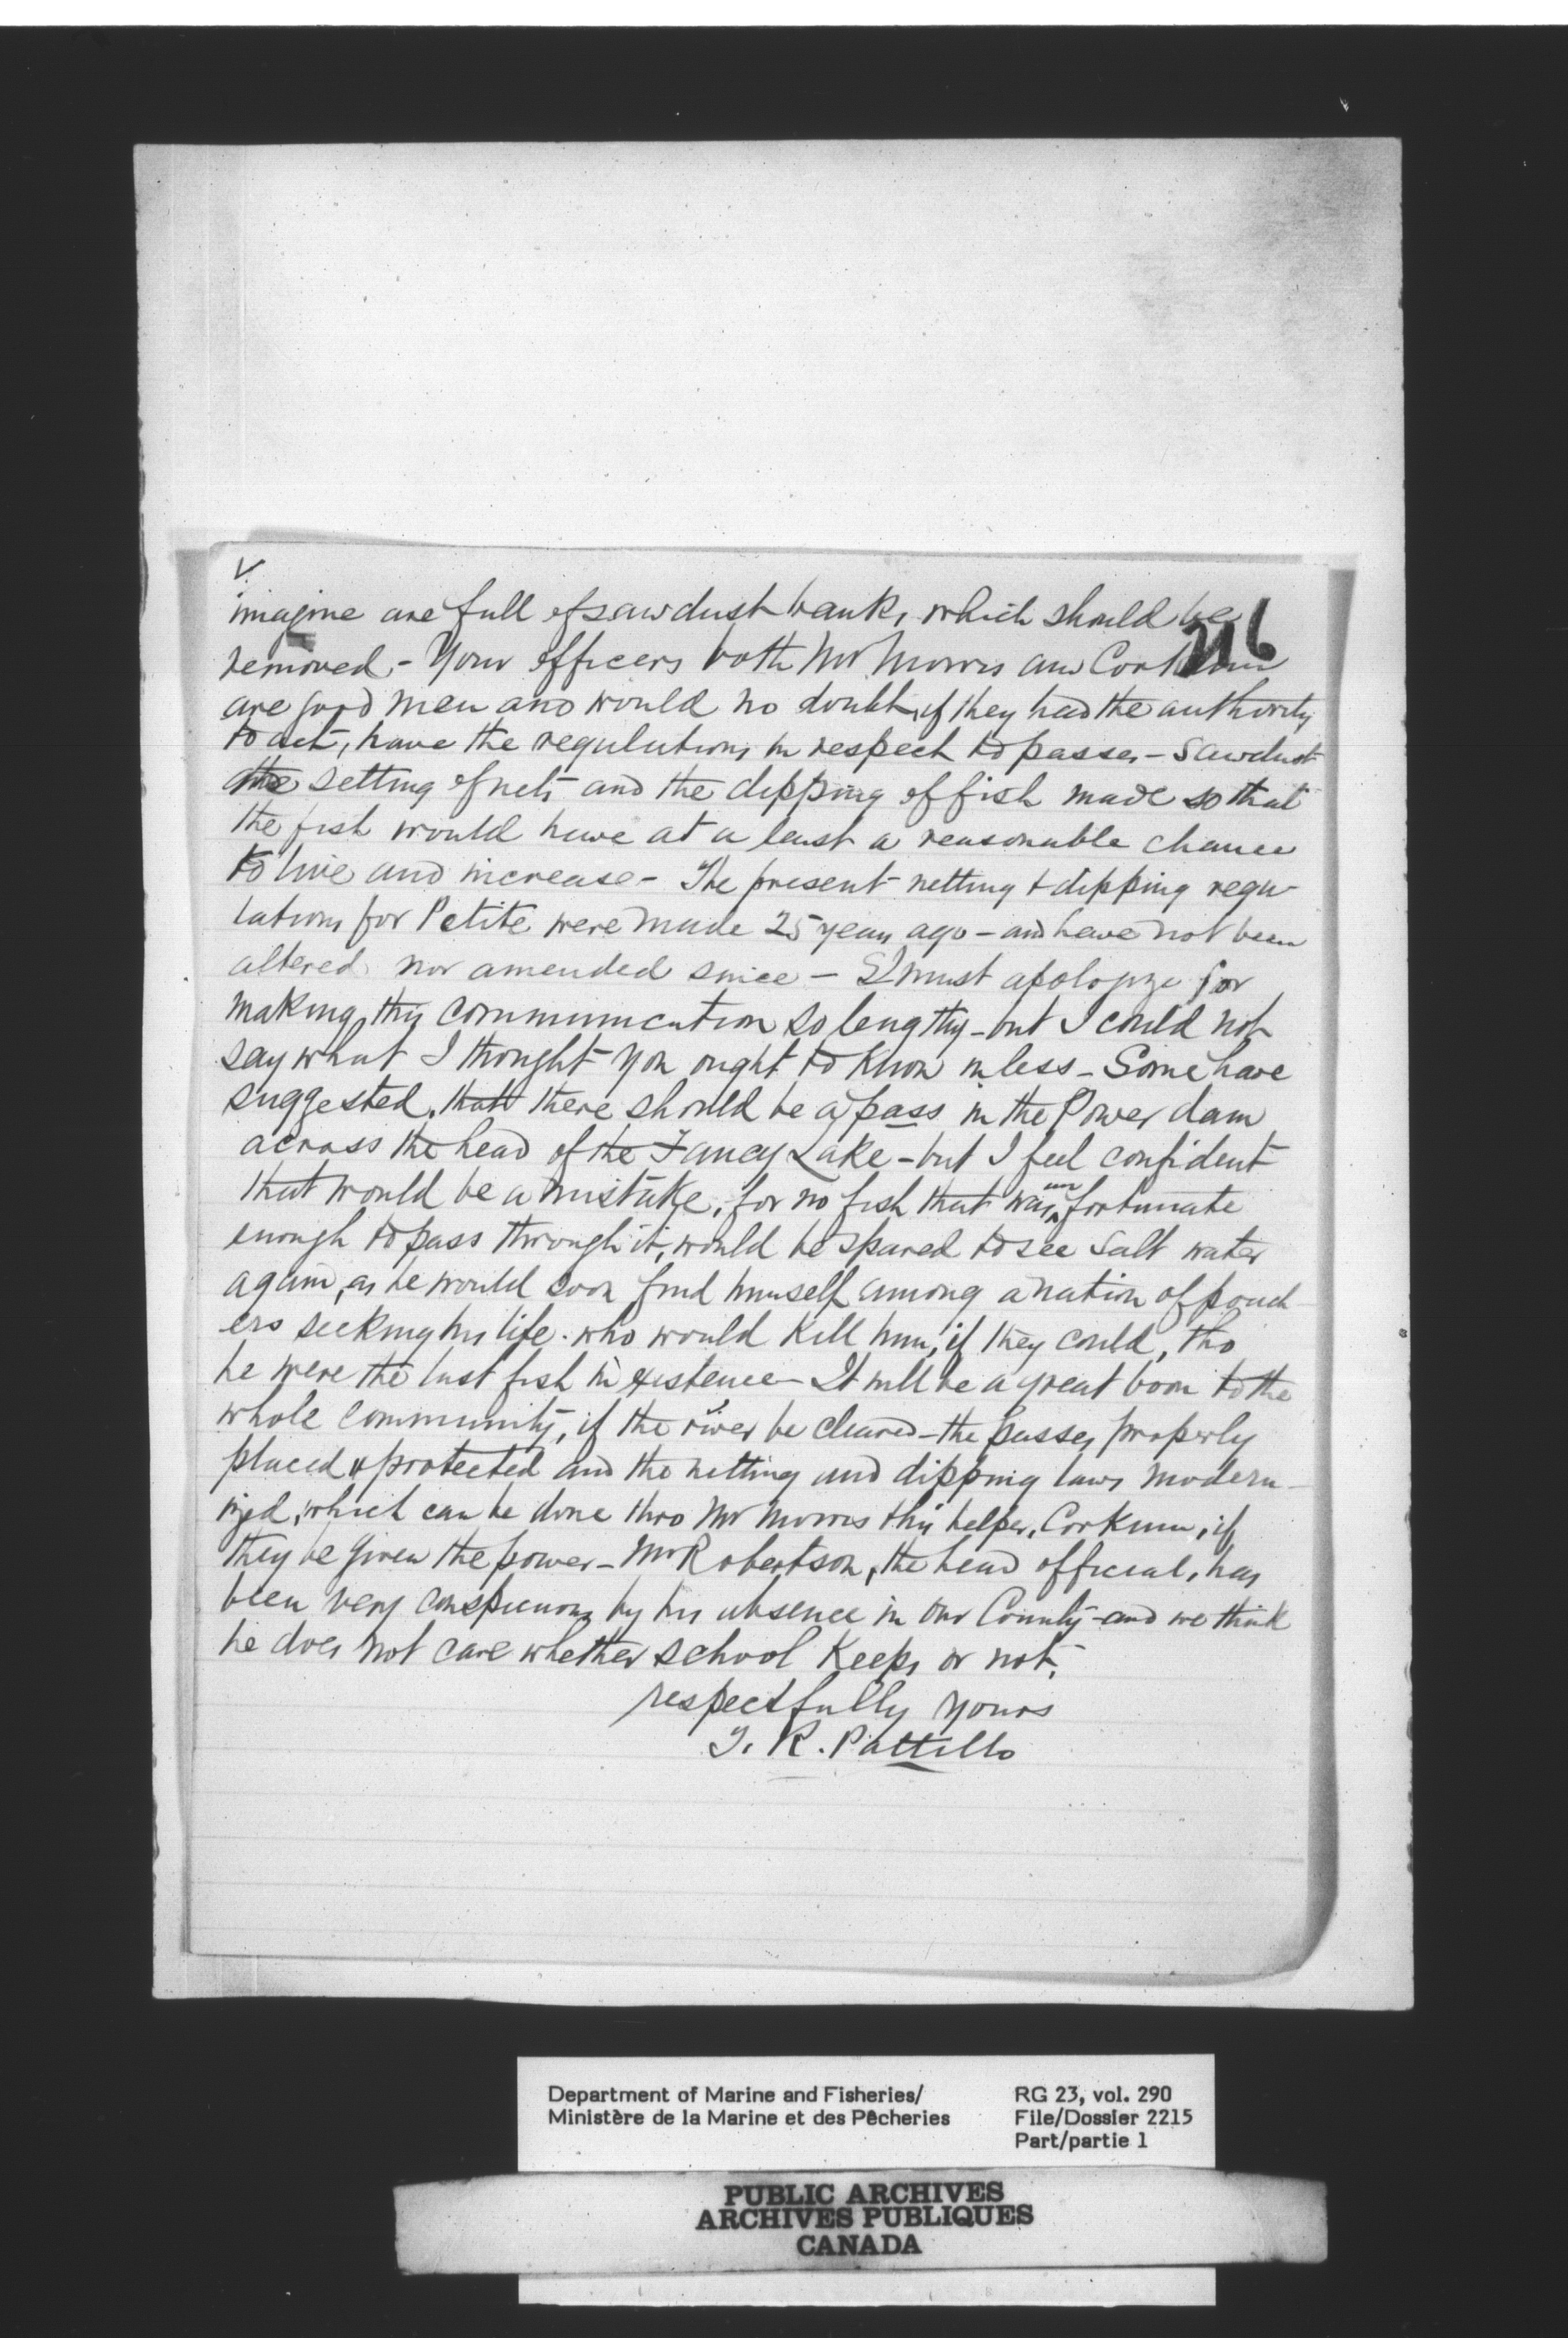 V
imagine are full of sawdust banks, which should be
216
removed - Your officers both Mr Morris and Corkum
are good men and would no doubt, if they had the authority
to act, have the regulations in respect to passes - sawdust
the setting of nets and the dipping of fish made so that
the fish would have at a least a reasonable chance
to live and increase - The present netting & dipping regu-
lations for Petite were made 25 years ago - and have not been
altered nor amended since - I must apologize for
making this communication so lengthy - but I could not
say what I thought you ought to know in less - Some have
suggested, that there should be a pass in the Power dam
across the head of the Fancy Lake - but I feel confident
that would be a mistake, for no fish that was unfortunate
enough to pass through it, would be spared to see salt water
again, as he would soon find himself among a nation of poach-
ers seeking his life. who would kill him, if they could, tho
he were the last fish in existence - It will be a great boon to the
whole community, if the river be cleared - the passes properly
placed & protected and the netting and dipping laws modern-
ized, which can be done thro Mr Morris & his helper, Corkum, if
they be given the power - Mr Robertson, the head official, has
been very conspicuous by his absence in our County - and we think
he does not care whether school keeps or not.
respectfully yours
T. R. Pattillo
Department of Marine and Fisheries/
Ministère de la Marine et des Pêcheries
RG 23, vol. 290
File/Dossier 2215
Part/partie 1
PUBLIC ARCHIVES
ARCHIVES PUBLIQUES
CANADA